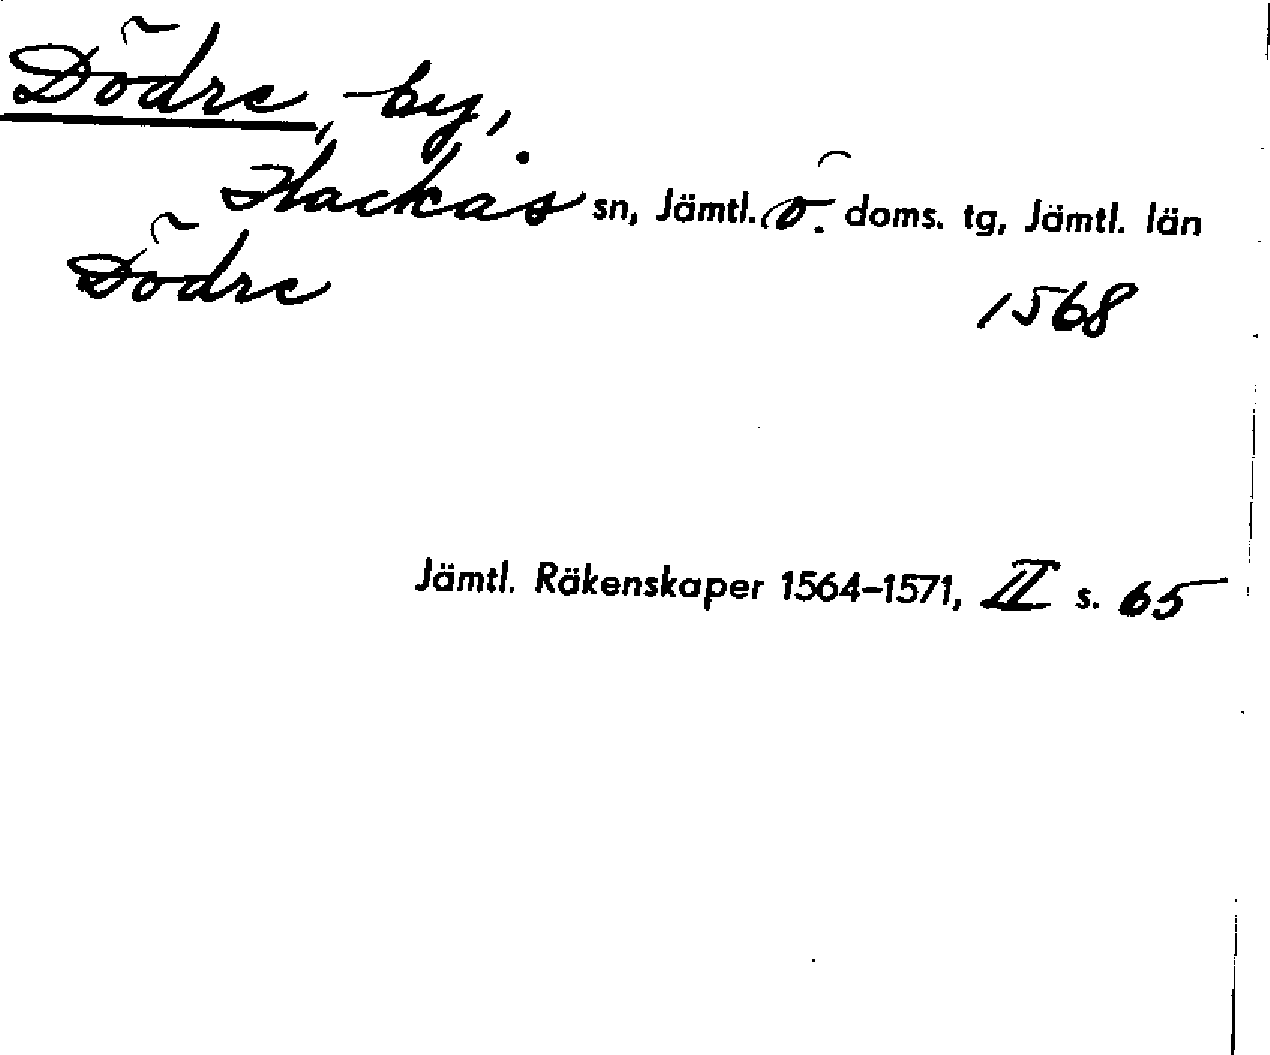 Dödre, by,
Hackås sn, Jämtl. ö. doms. tg, Jämtl. län
Dödre 1568
Jämtl. Räkenskaper 1564–1571, II s. 65